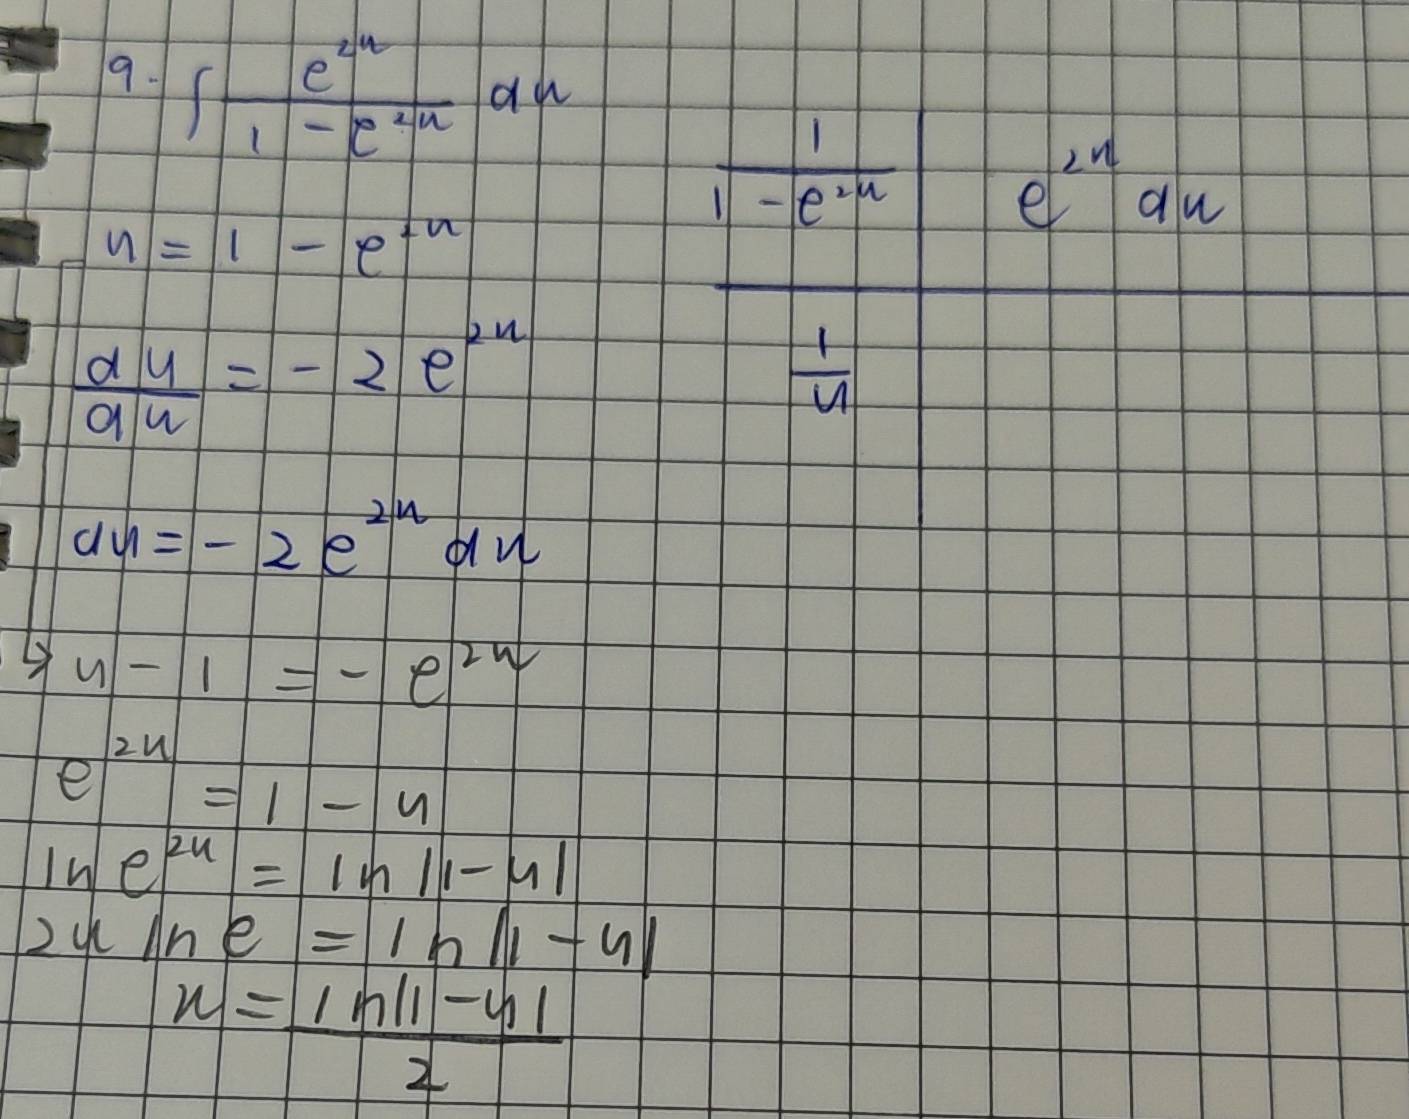 9. ∫ e^{2x} / (1 - e^{2x}) dx
u = 1 - e^{2x}
du/dx = -2e^{2x}
du = -2e^{2x} dx
u - 1 = -e^{2x}
e^{2x} = 1 - u
ln e^{2x} = ln|1-u|
2x ln e = ln|1-u|
x = ln|1-u| / 2
1 / (1 - e^{2x}) | e^{2x} dx
1/u